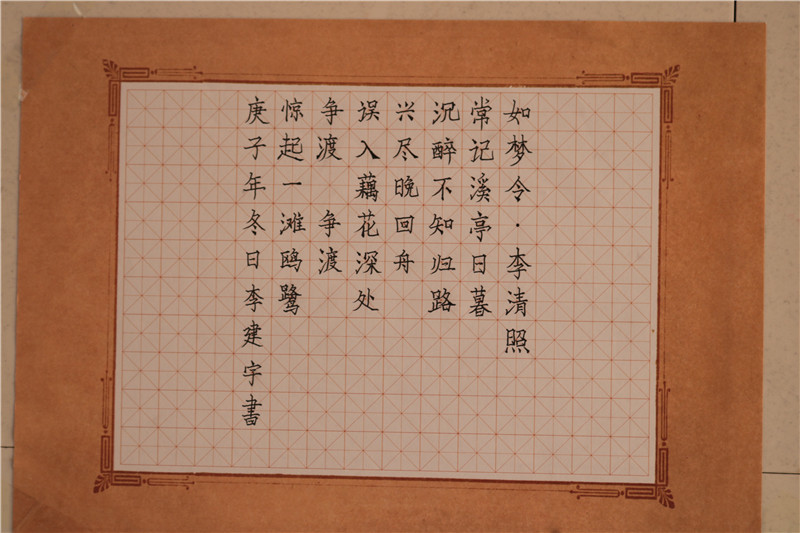 如梦令·李清照
常记溪亭日暮
沉醉不知归路
兴尽晚回舟
误入藕花深处
争渡 争渡
惊起一滩鸥鹭
庚子年冬日李建宇書